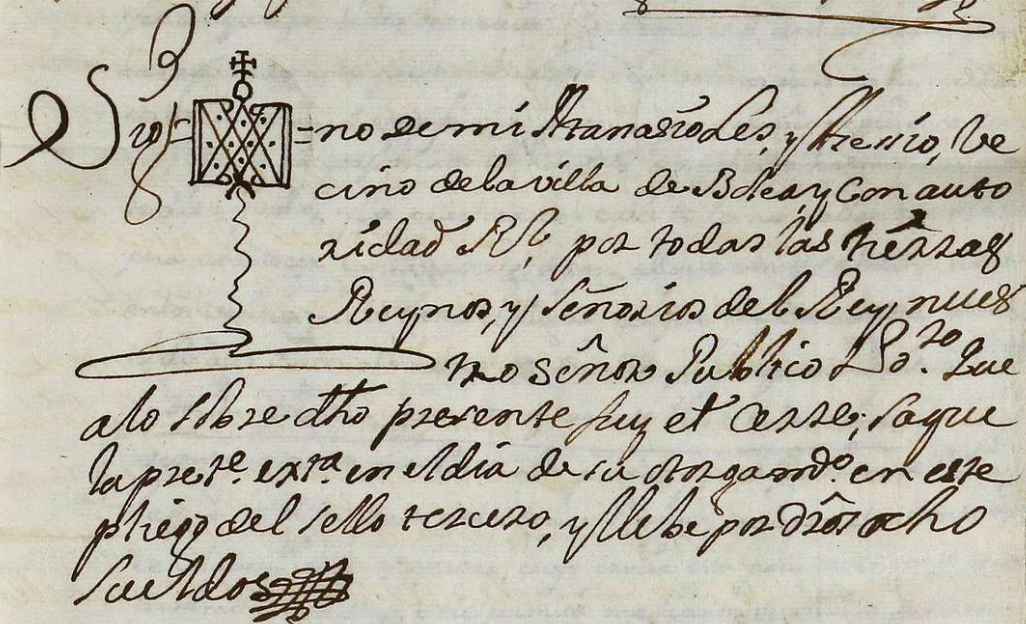 Sig=no de mi Atanasio Les, y , Ve
cino de la villa de Bolea, y con auto
ridad Rl, por todas las tierras
Reynos, y Señorios del Rey nues
tro señor Publico que
alo sobre dho presente fuy et cerre; saque
la preste. exta. en el dia de su otorgamto. en este
pliego del sello tercero, y llebe por dros ocho
sueldos